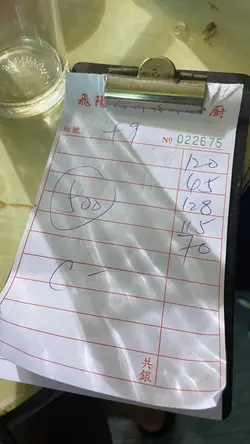 飛陽 廚
檯號: 19 No 022675
120
65
128
500
115
70
C -
共
銀